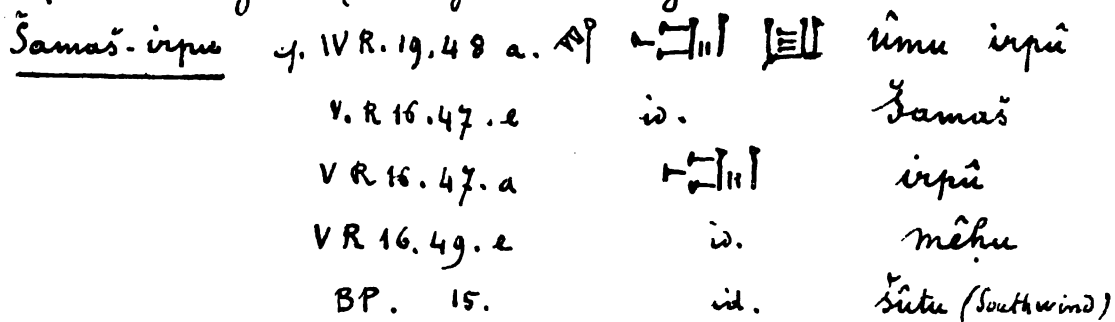 Šamaš-irpu cf. IV R. 19. 48 a. ûmu irpû
V. R 16. 47. e id. Šamaš
V R 16. 47. a irpû
V R 16. 49. e id. mêḫu
BP. 15. id. šûtu (Southwind)